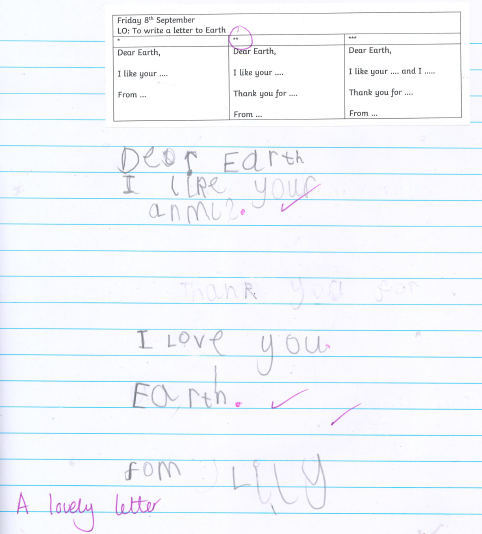 Friday 8th September
LO: To write a letter to Earth
*
Dear Earth,
I like your ....
From ...
**
Dear Earth,
I like your ....
Thank you for ....
From ...
***
Dear Earth,
I like your .... and I .....
Thank you for ....
From ...
Dear Earth
I like your
anmls.
Thank you for
I Love you.
Earth.
fom Lilly
A lovely letter